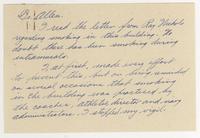 Dr. Allen.
I read the letter from Ray Nichols
regarding smoking in this building. No
doubt there has been smoking during
intramurals.
I, at first, made every effort
to prevent this, but on being reminded
on several occasions that smoking
in the building was practiced by
the coaches, athletic director and many
administrators. I stopped my vigil.